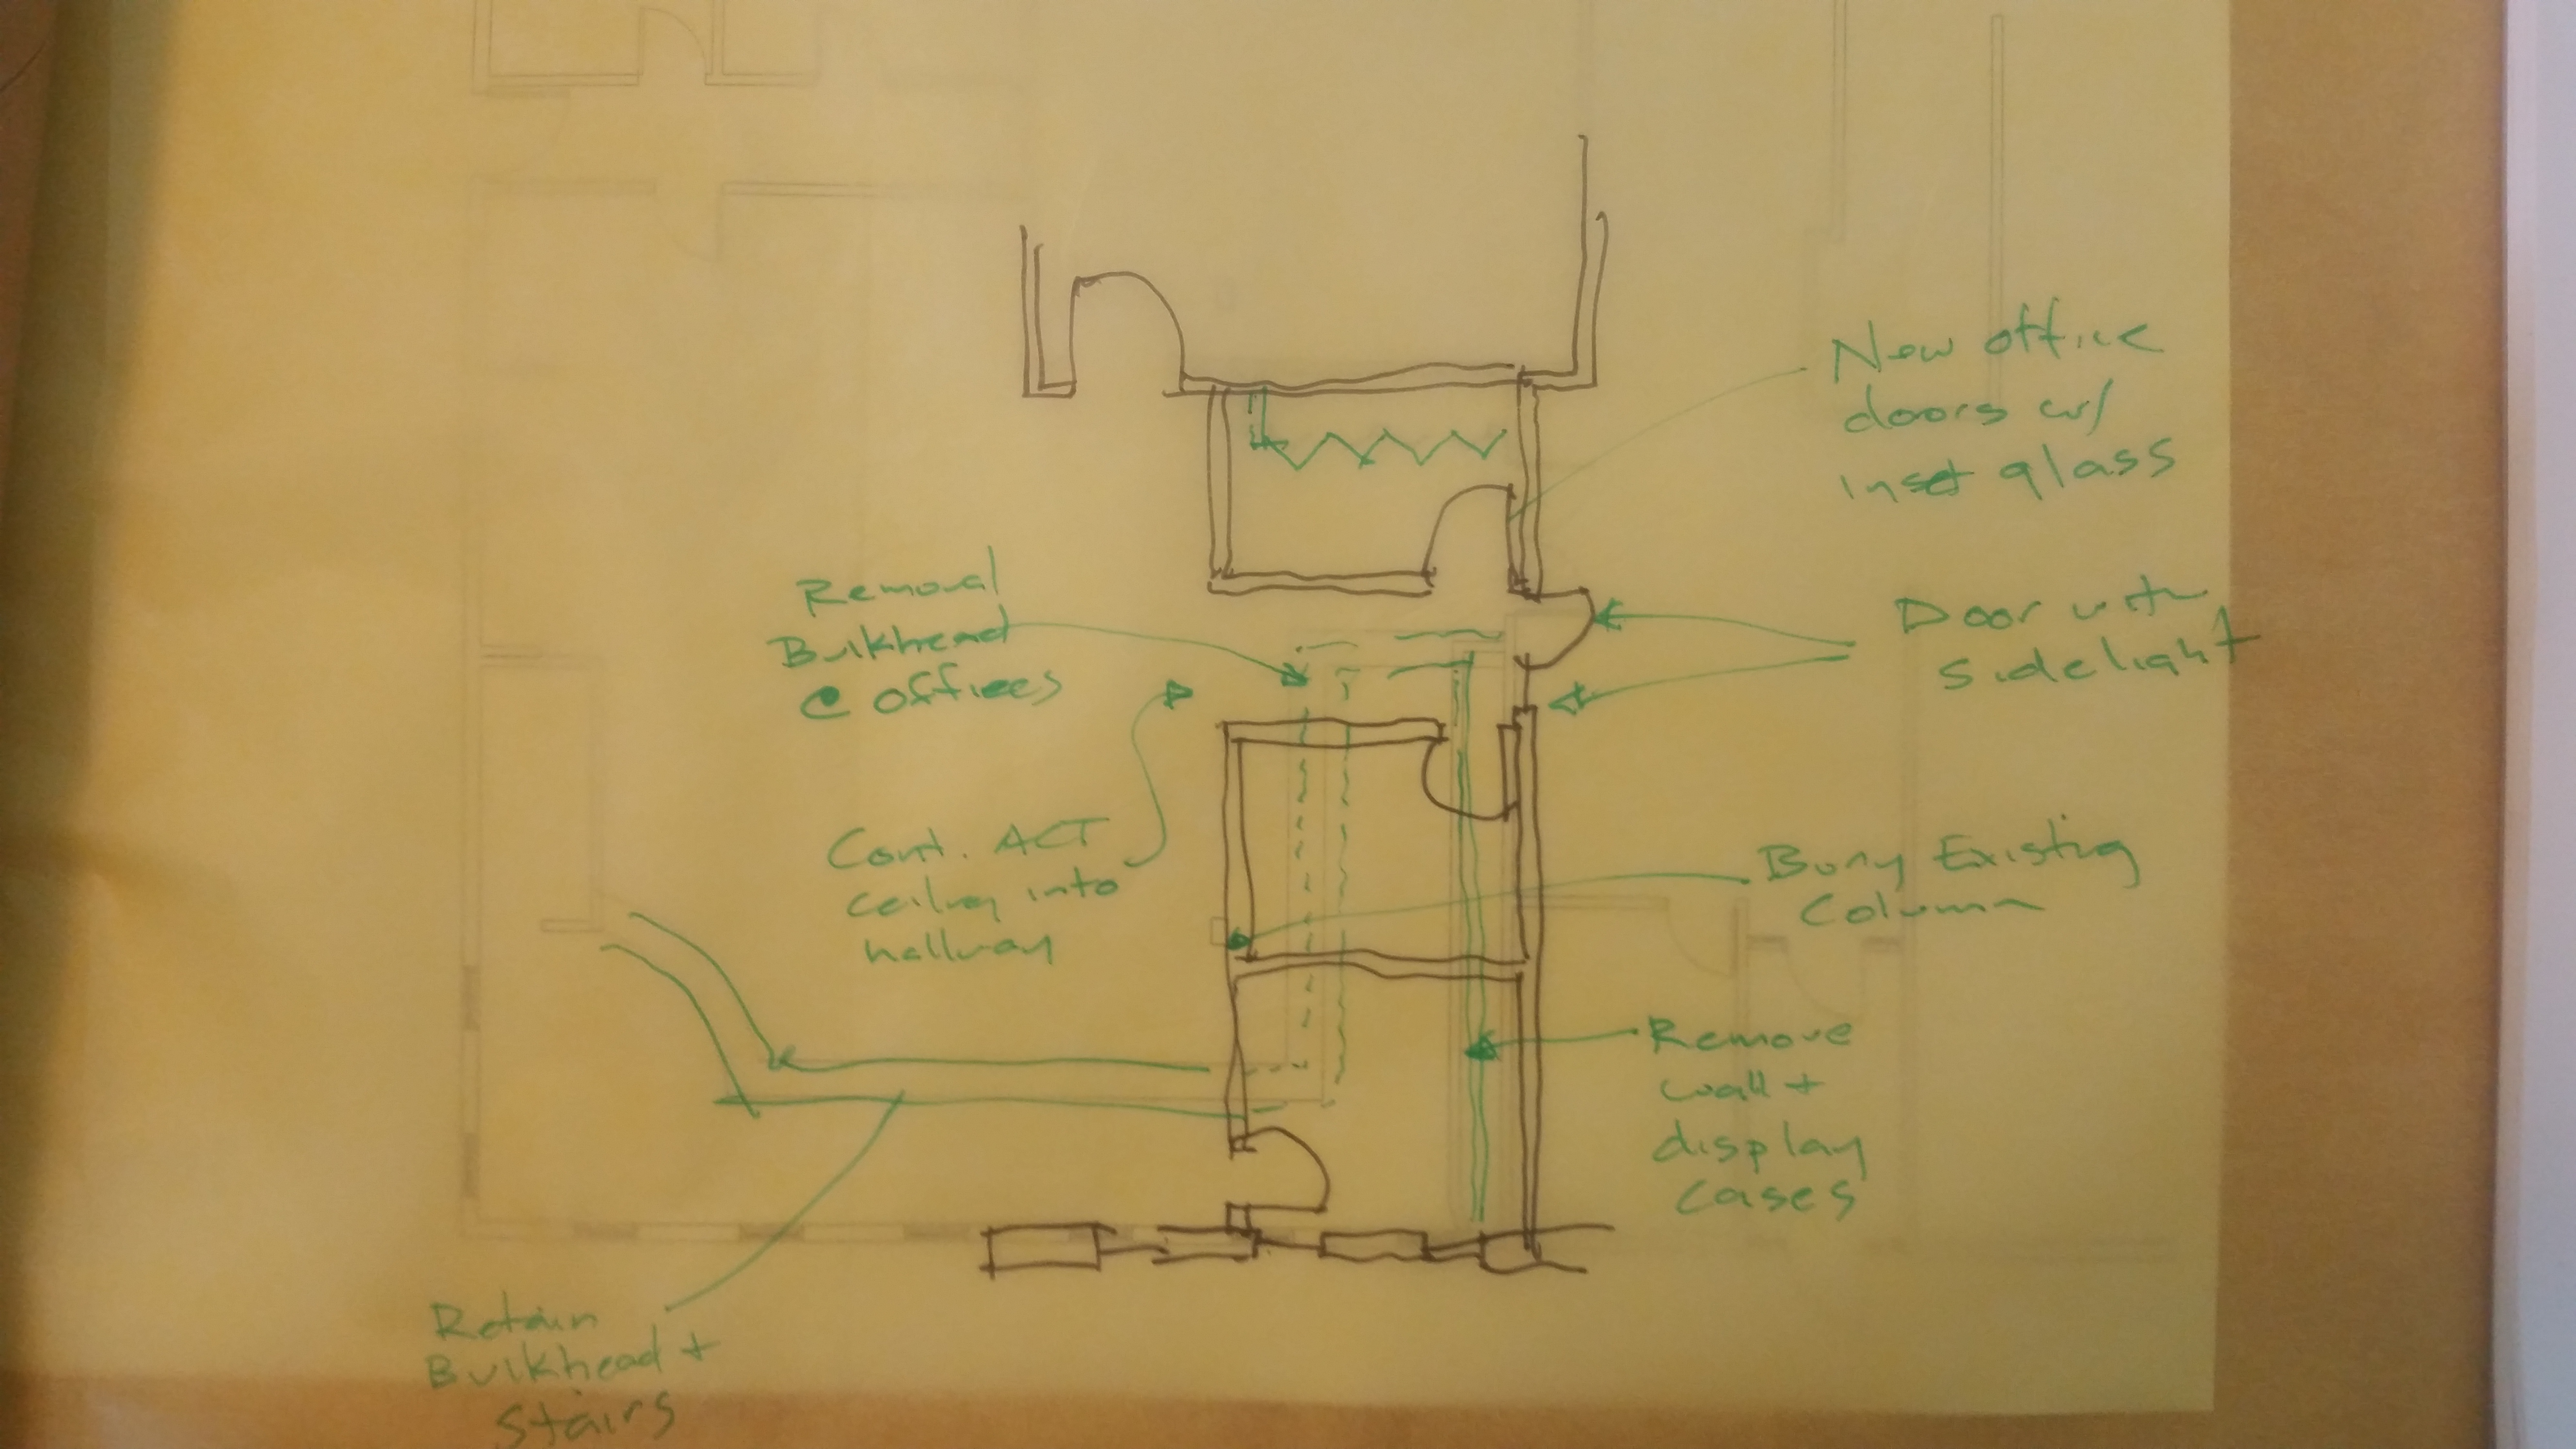 New office
doors w/
inset glass
Removal
Bulkhead
@ offices
Door with
sidelight
Cont. ACT
ceiling into
hallway
Bury Existing
Column
Remove
wall +
display
cases
Retain
Bulkhead +
Stairs